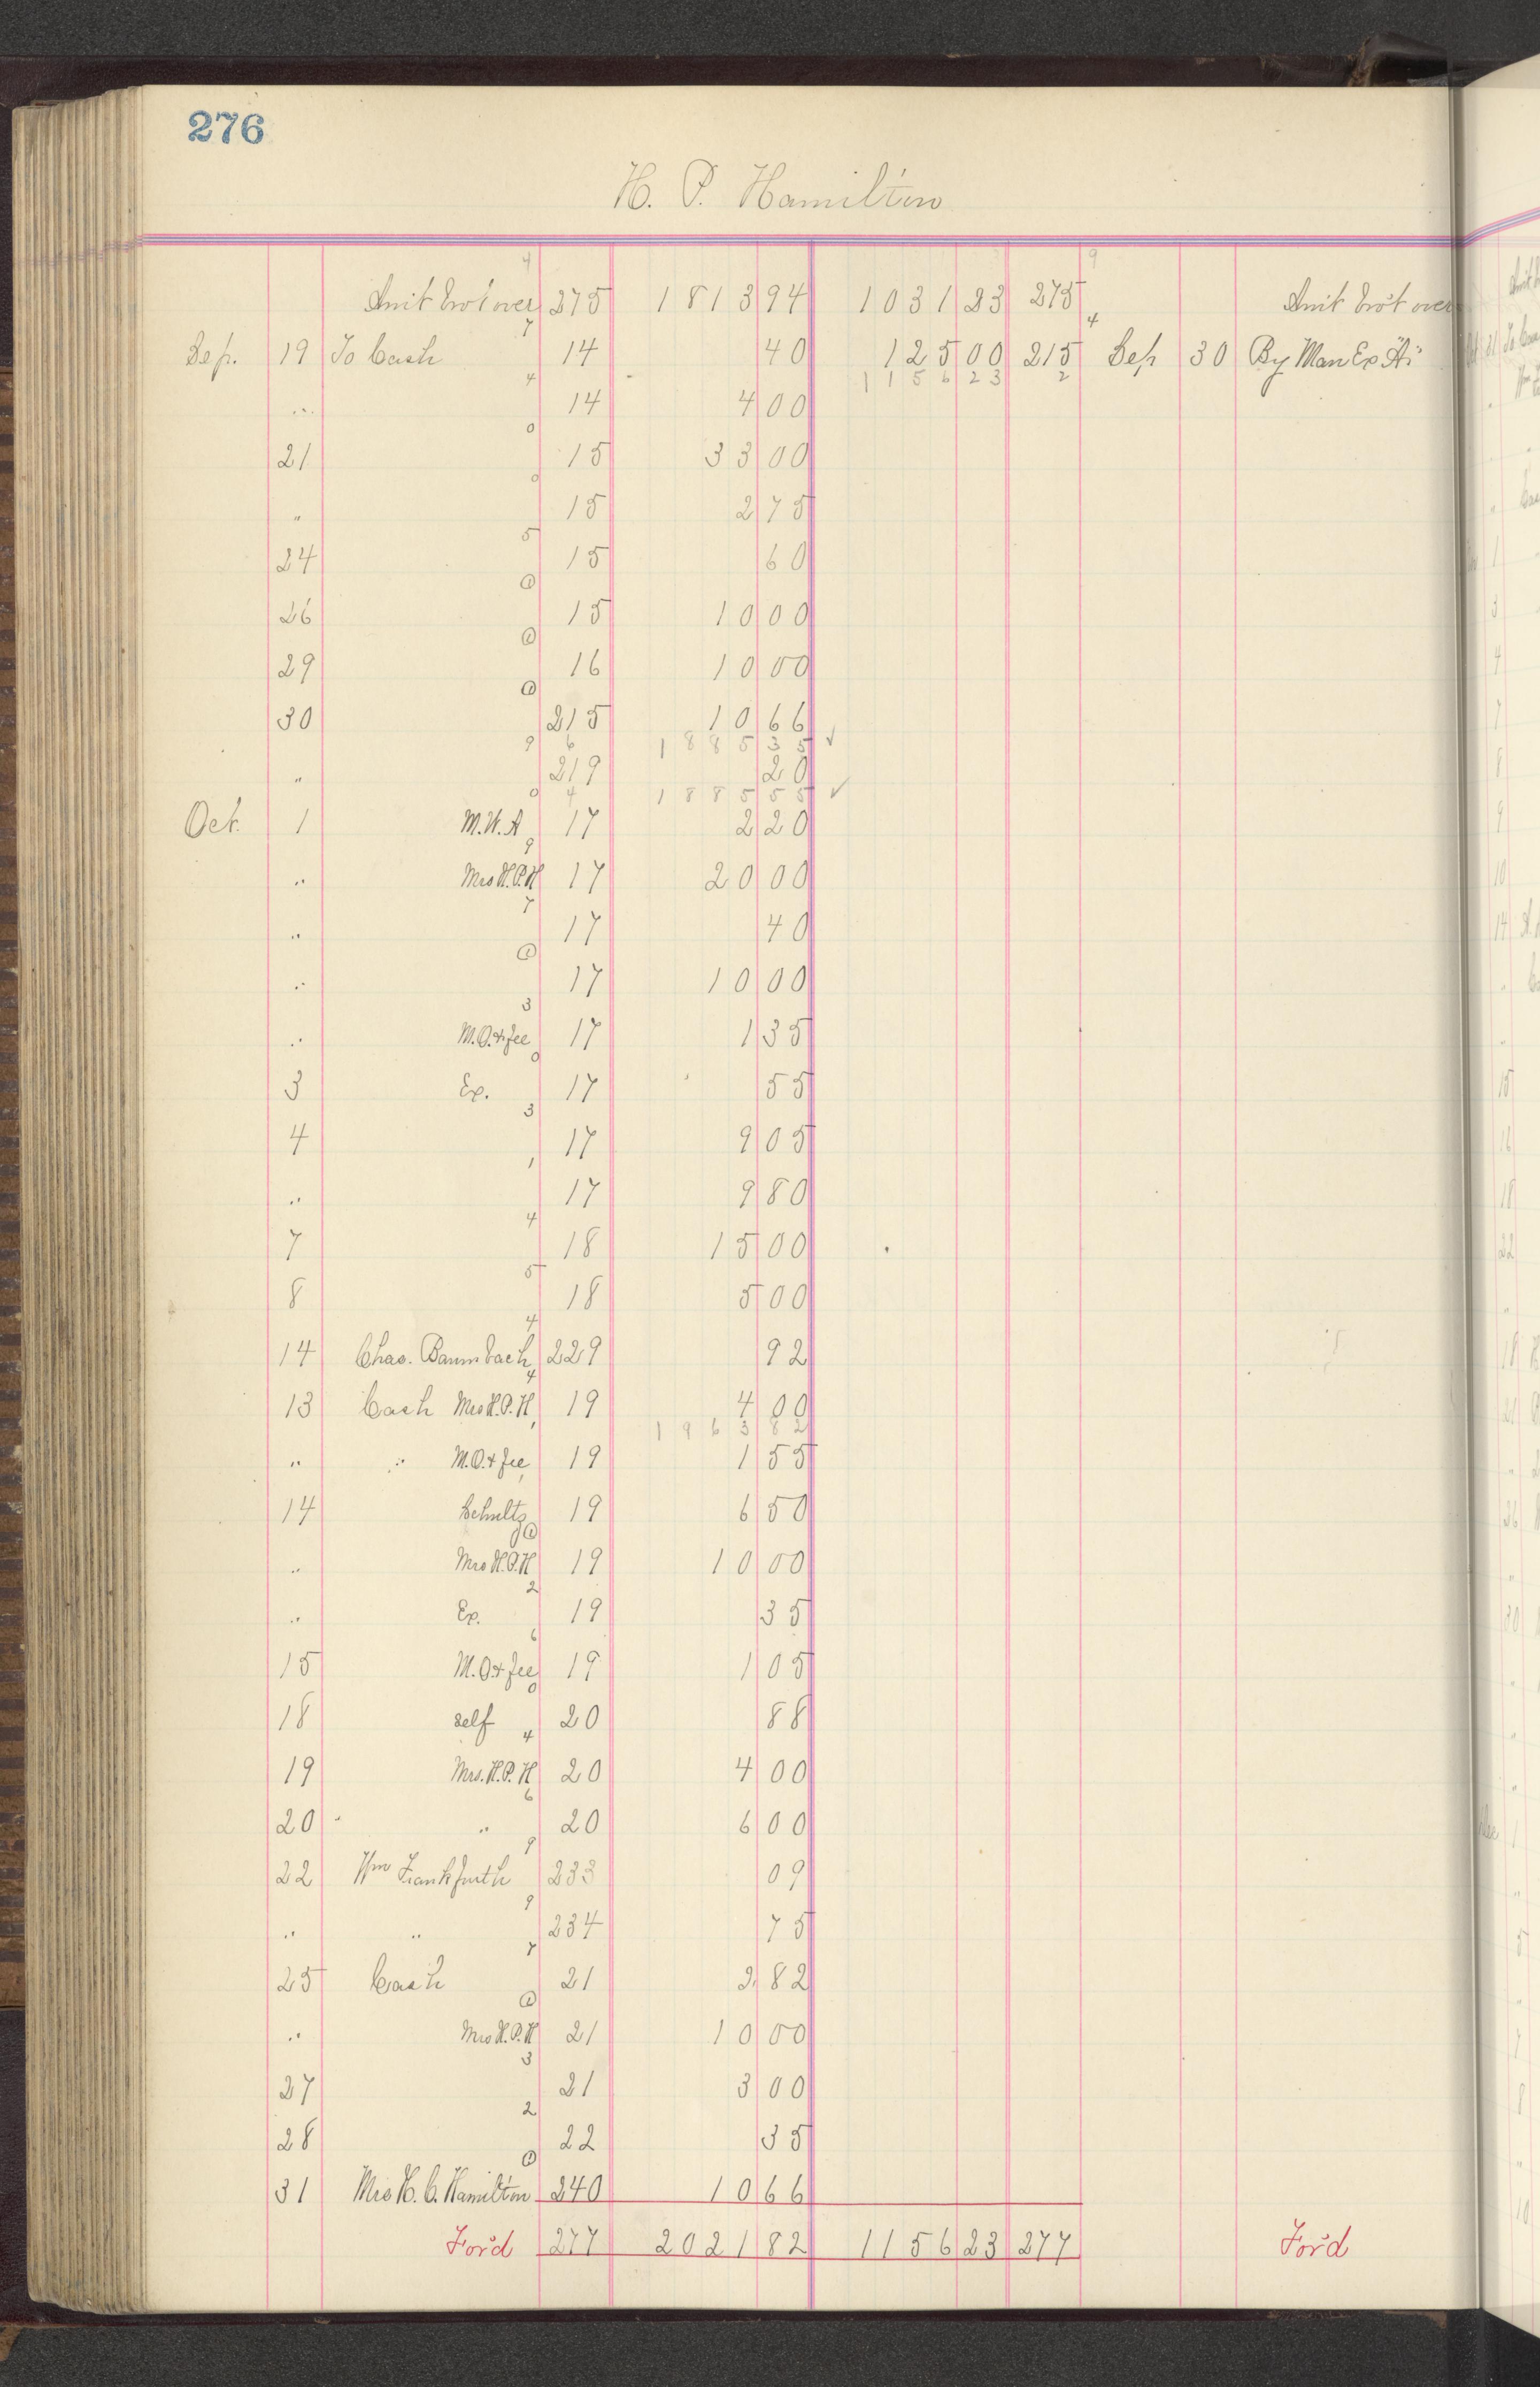 276
H. P. Hamilton
Amt bro't over 275 1813 94 1031 23 275 Amt bro't over
Sep. 19 To Cash 14 40 125 00 215 Sep 30 By Man Ex %
1156 23
" 14 4 00
21 15 33 00
" 15 2 75
24 15 60
26 15 10 00
29 16 10 00
30 215 10 66
1885 35 ✓
" 219 20
1885 55 ✓
Oct. 1 M.W.A 17 2 20
" Mrs H.P.H 17 20 00
" 17 40
" 17 10 00
" M.O. & fee 17 1 35
3 Ex. 17 55
4 17 9 05
" 17 9 80
7 18 15 00
8 18 5 00
14 Chas. Baumbach 229 92
13 Cash Mrs H.P.H 19 4 00
1963 82
" " M.O. & fee 19 1 55
14 Schultz 19 6 50
" Mrs H.P.H 19 10 00
" Ex. 19 35
15 M.O. & fee 19 1 05
18 self 20 88
19 Mrs. H.P.H 20 4 00
20 " " 20 6 00
22 Wm Frankfurth 233 09
" " 234 75
25 Cash 21 2 82
" Mrs H.P.H 21 10 00
27 21 3 00
28 22 35
31 Mrs H. C. Hamilton 240 10 66
For'd 277 2021 82 1156 23 277 For'd